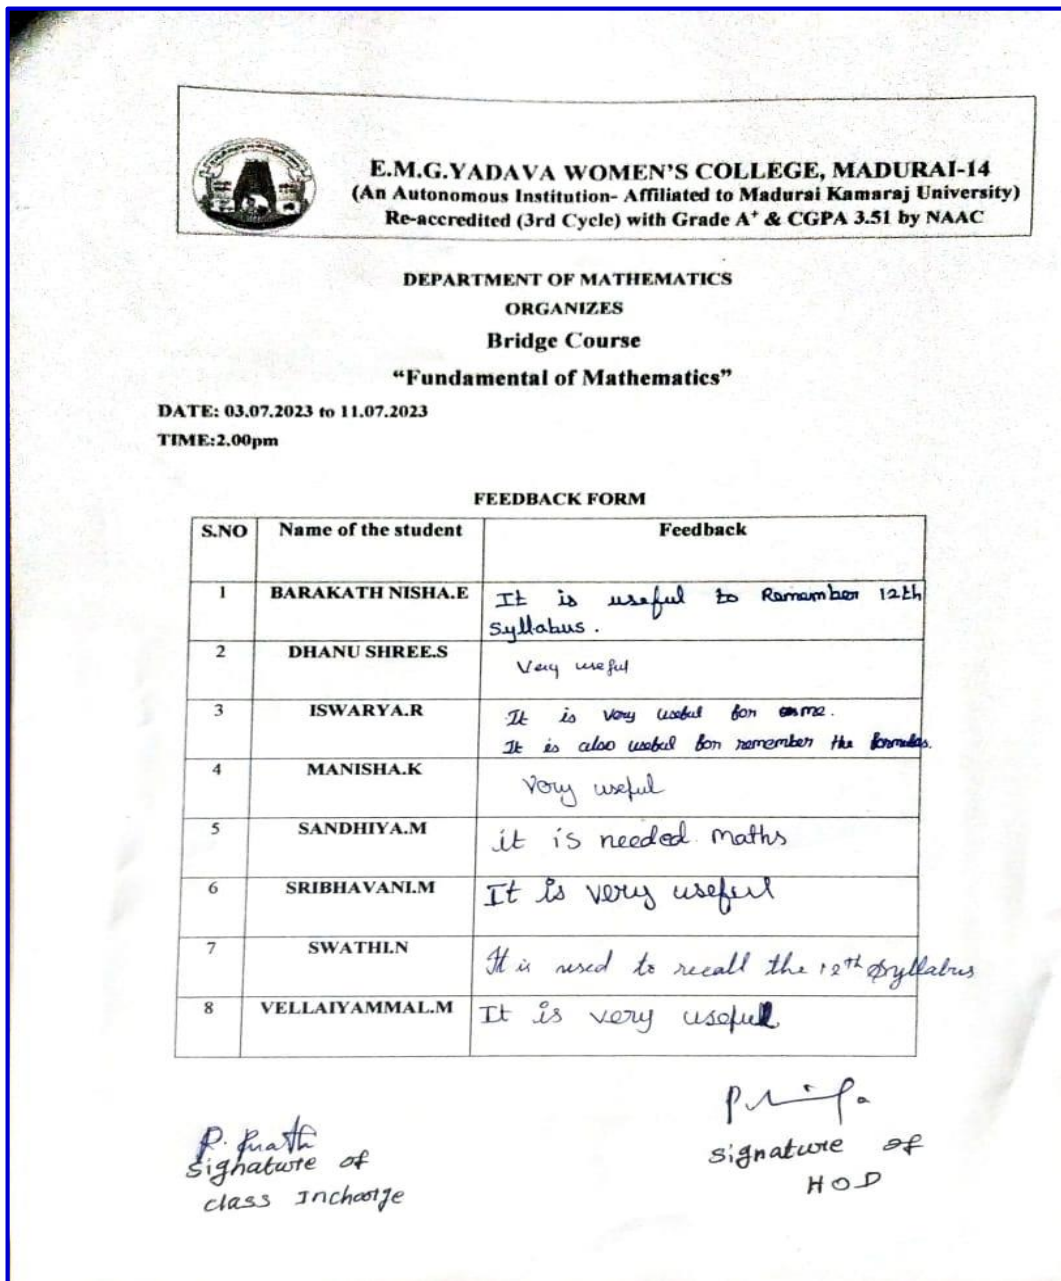 E.M.G.YADAVA WOMEN'S COLLEGE, MADURAI-14
(An Autonomous Institution- Affiliated to Madurai Kamaraj University)
Re-accredited (3rd Cycle) with Grade A⁺ & CGPA 3.51 by NAAC
DEPARTMENT OF MATHEMATICS
ORGANIZES
Bridge Course
“Fundamental of Mathematics”
DATE: 03.07.2023 to 11.07.2023
TIME:2.00pm
FEEDBACK FORM
S.NO Name of the student Feedback
1 BARAKATH NISHA.E It is useful to Remember 12th
Syllabus.
2 DHANU SHREE.S Very useful
3 ISWARYA.R It is very useful for me.
It is also useful for remember the formulas.
4 MANISHA.K Very useful
5 SANDHIYA.M it is needed maths
6 SRIBHAVANI.M It is very useful
7 SWATHI.N It is used to recall the 12th syllabus
8 VELLAIYAMMAL.M It is very useful
Signature of
class Incharge
signature of
HOD